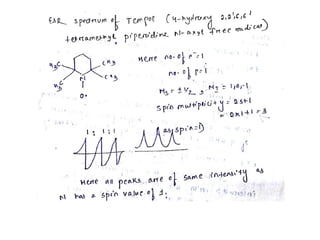 ESR spectrum of TEMPOL (4-hydroxy 2,2,6,6'
tetramethyl piperidine N-oxyl free radical)
H3C
CH3
H3C
CH3
N
O•
Here no. of e⁻ = 1
no. of p = 1
Ms = ± 1/2, MI = 1,0,-1
Spin multiplicity = 2S+1
= 2x1+1 = 3
1 : 1 : 1
(as spin = 1)
Here no peaks are of same intensity as
N has a spin value of 1.